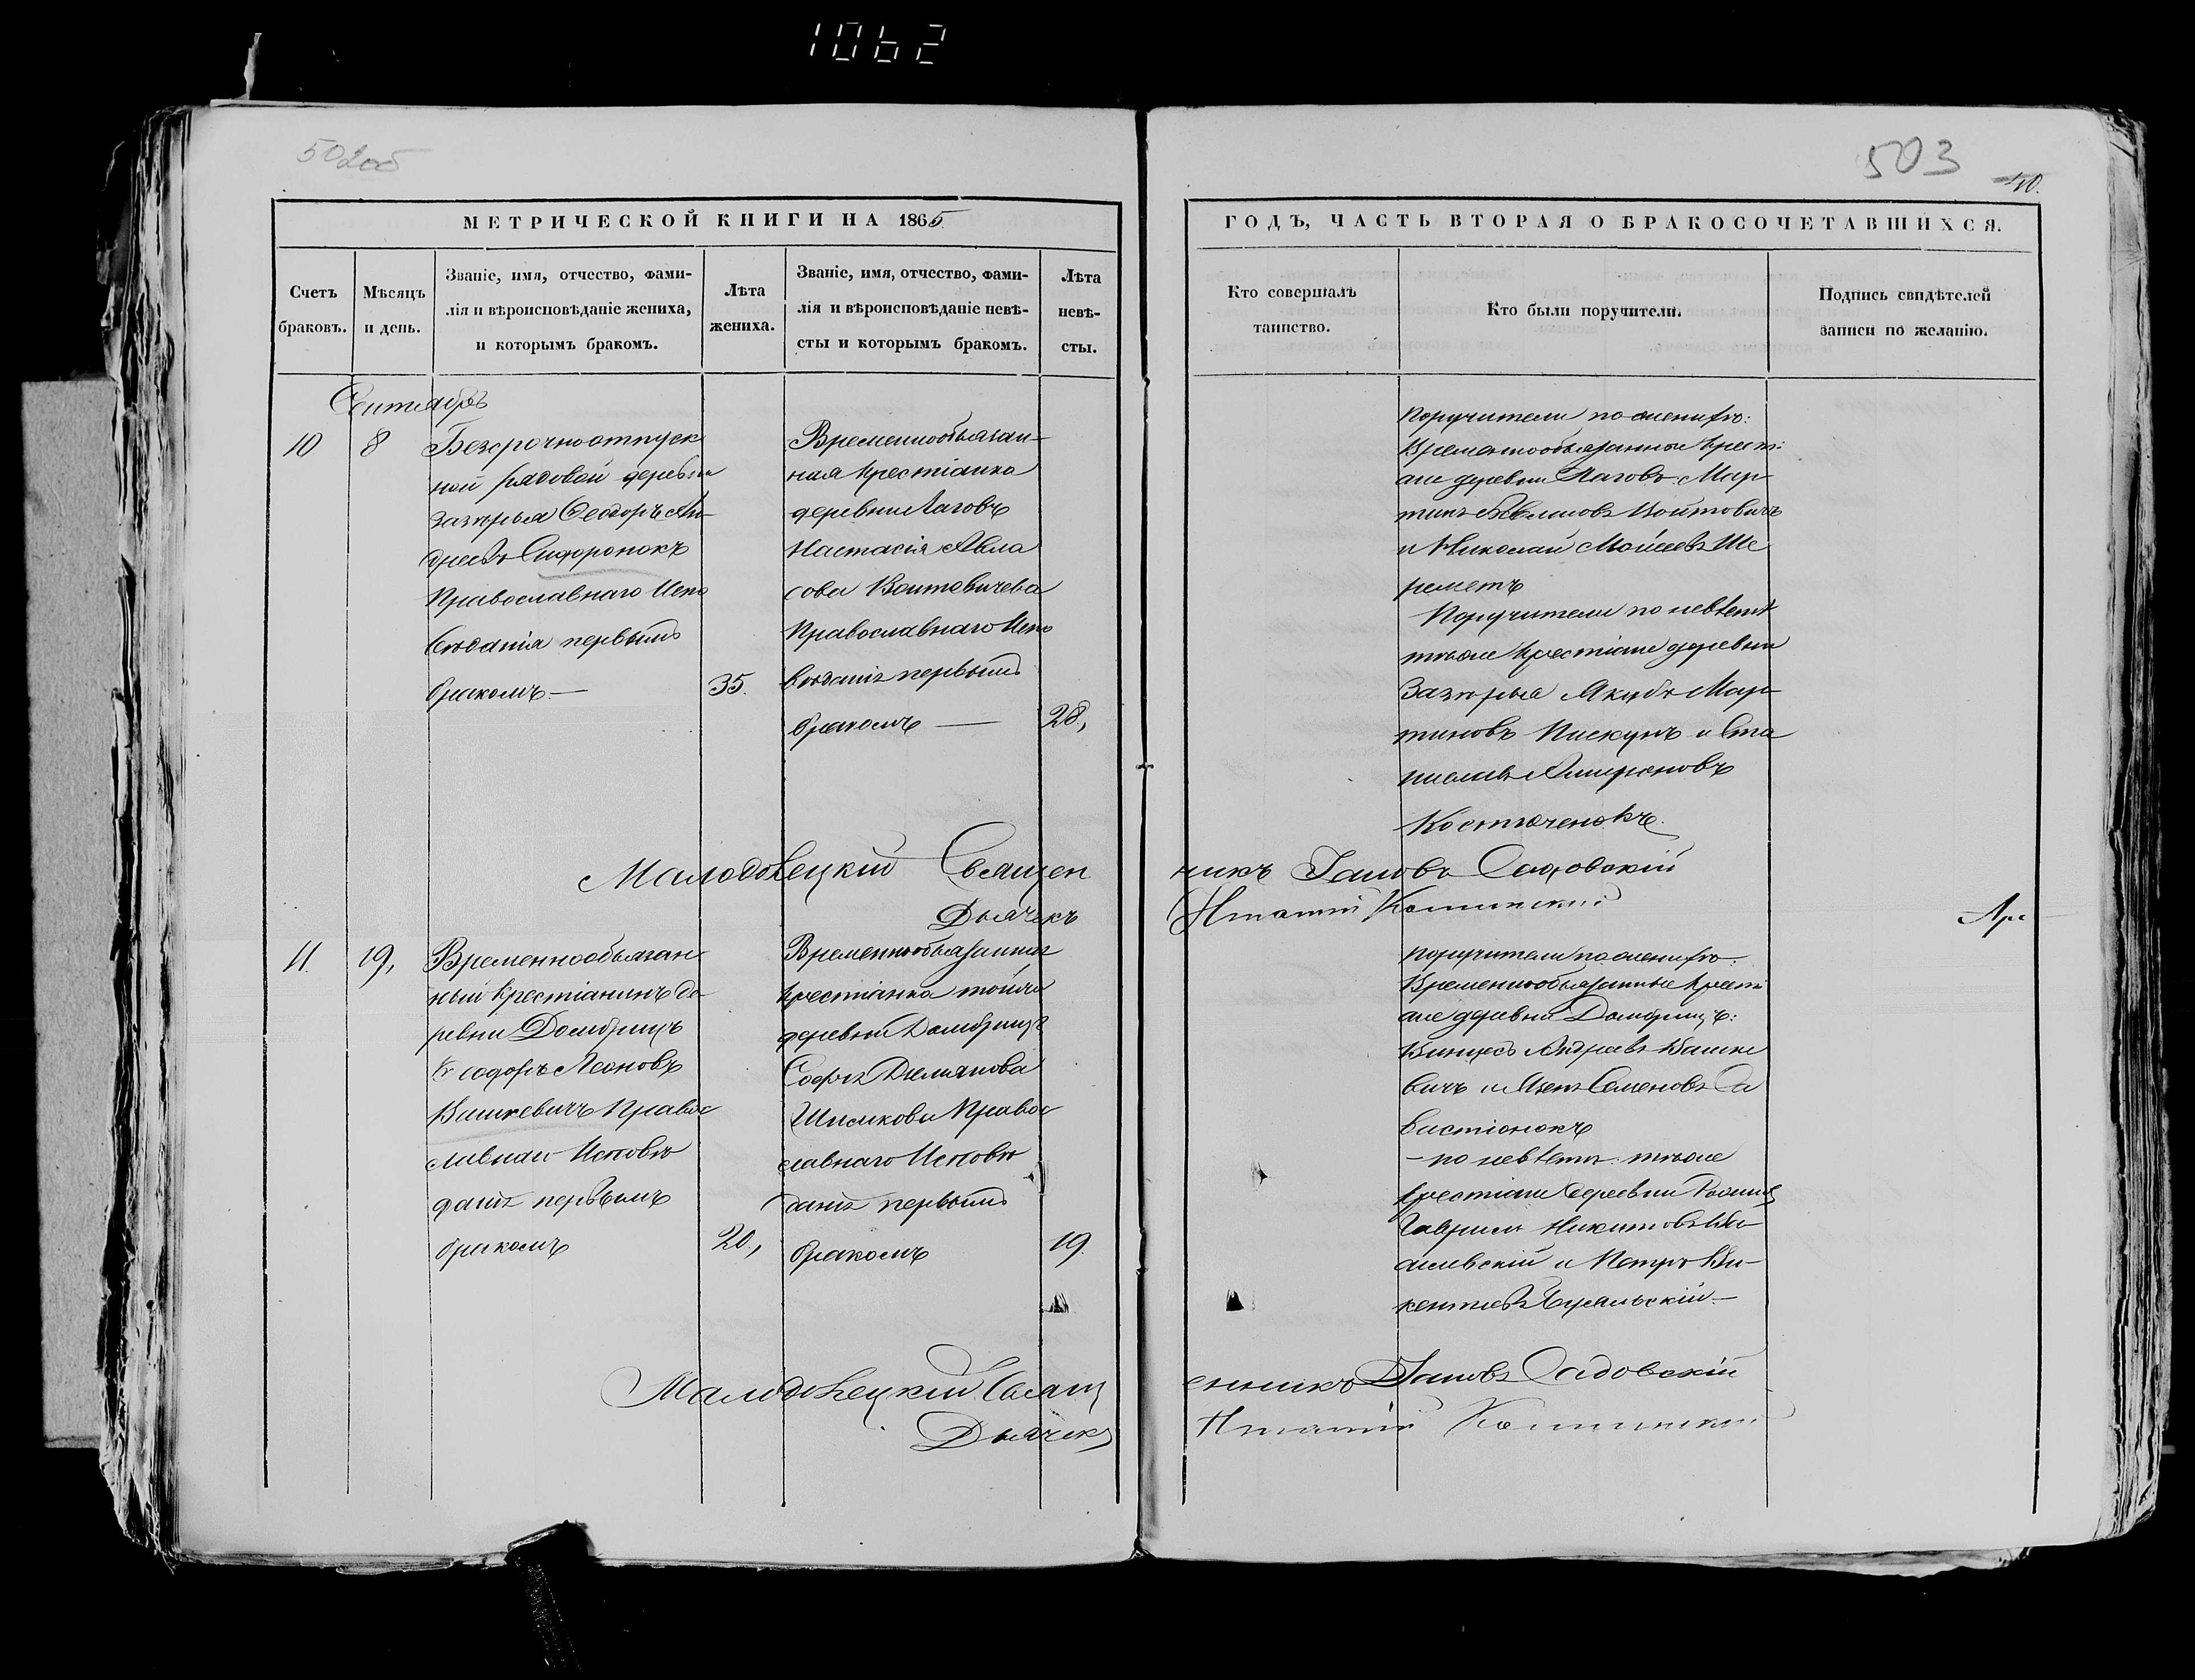 1062
502об
503
40.
МЕТРИЧЕСКОЙ КНИГИ НА 1865
ГОДЪ, ЧАСТЬ ВТОРАЯ О БРАКОСОЧЕТАВШИХСЯ.
Счетъ
браковъ.
Мѣсяцъ
и день.
Званіе, имя, отчество, фами-
лія и вѣроисповѣданіе жениха,
и которымъ бракомъ.
Лѣта
жениха.
Званіе, имя, отчество, фами-
лія и вѣроисповѣданіе невѣ-
сты и которымъ бракомъ.
Лѣта
невѣ-
сты.
Кто совершалъ
таинство.
Кто были поручители.
Подпись свидѣтелей
записи по желанію.
Сентябрь
10
8
Безсрочноотпуск
ной рядовой деревни
Феодоръ Ан-
дреевъ Сидоронокъ
Православнаго Испо
вѣданія первымъ
бракомъ —
35.
Временнообязан-
ная крестіанка
деревни Лаговъ
Настасія Авла
сова Войтовичева
Православнаго Испо
вѣданія первымъ
бракомъ —
28,
Поручители по женихѣ:
Временнообязанные крест:
ане деревни Лаговъ: Мар-
тинъ Войтовичъ
и Николай Моисеевъ Ше
реметъ
Поручители по невѣстѣ
тѣже крестіане деревни
Мар-
тиновъ Пискунъ и Ста
ниславъ
Костюченокъ.
Малодовецкій Священ
никъ Іаковъ Садовскій
Дьячекъ
Игнатій
11.
19,
Временнообязан-
ный крестіанинъ де-
ревни Домбрицъ
Ѳеодоръ Леоновъ
Вашкевичъ Правос
лавнаго Исповѣ
данія первымъ
бракомъ
20,
Временнообязанная
крестіанка тойже
деревни Домбрицъ
Софія Демьянова
Шимкова Правос
лавнаго Исповѣ
данія первымъ
бракомъ
19.
Поручители по женихѣ:
Временнообязанные крести
ане деревни Домбрицъ:
Винцесъ Андреевъ Вашке
вичъ и Семеновъ Са
бастіонокъ
— по невѣстѣ: тѣже
крестіане деревни
Гаврилъ Никитовъ
и Петръ Ви-
кентіевъ
Малодовецкій Свящ
енникъ Іаковъ Садовскій
Дьячекъ
Игнатій